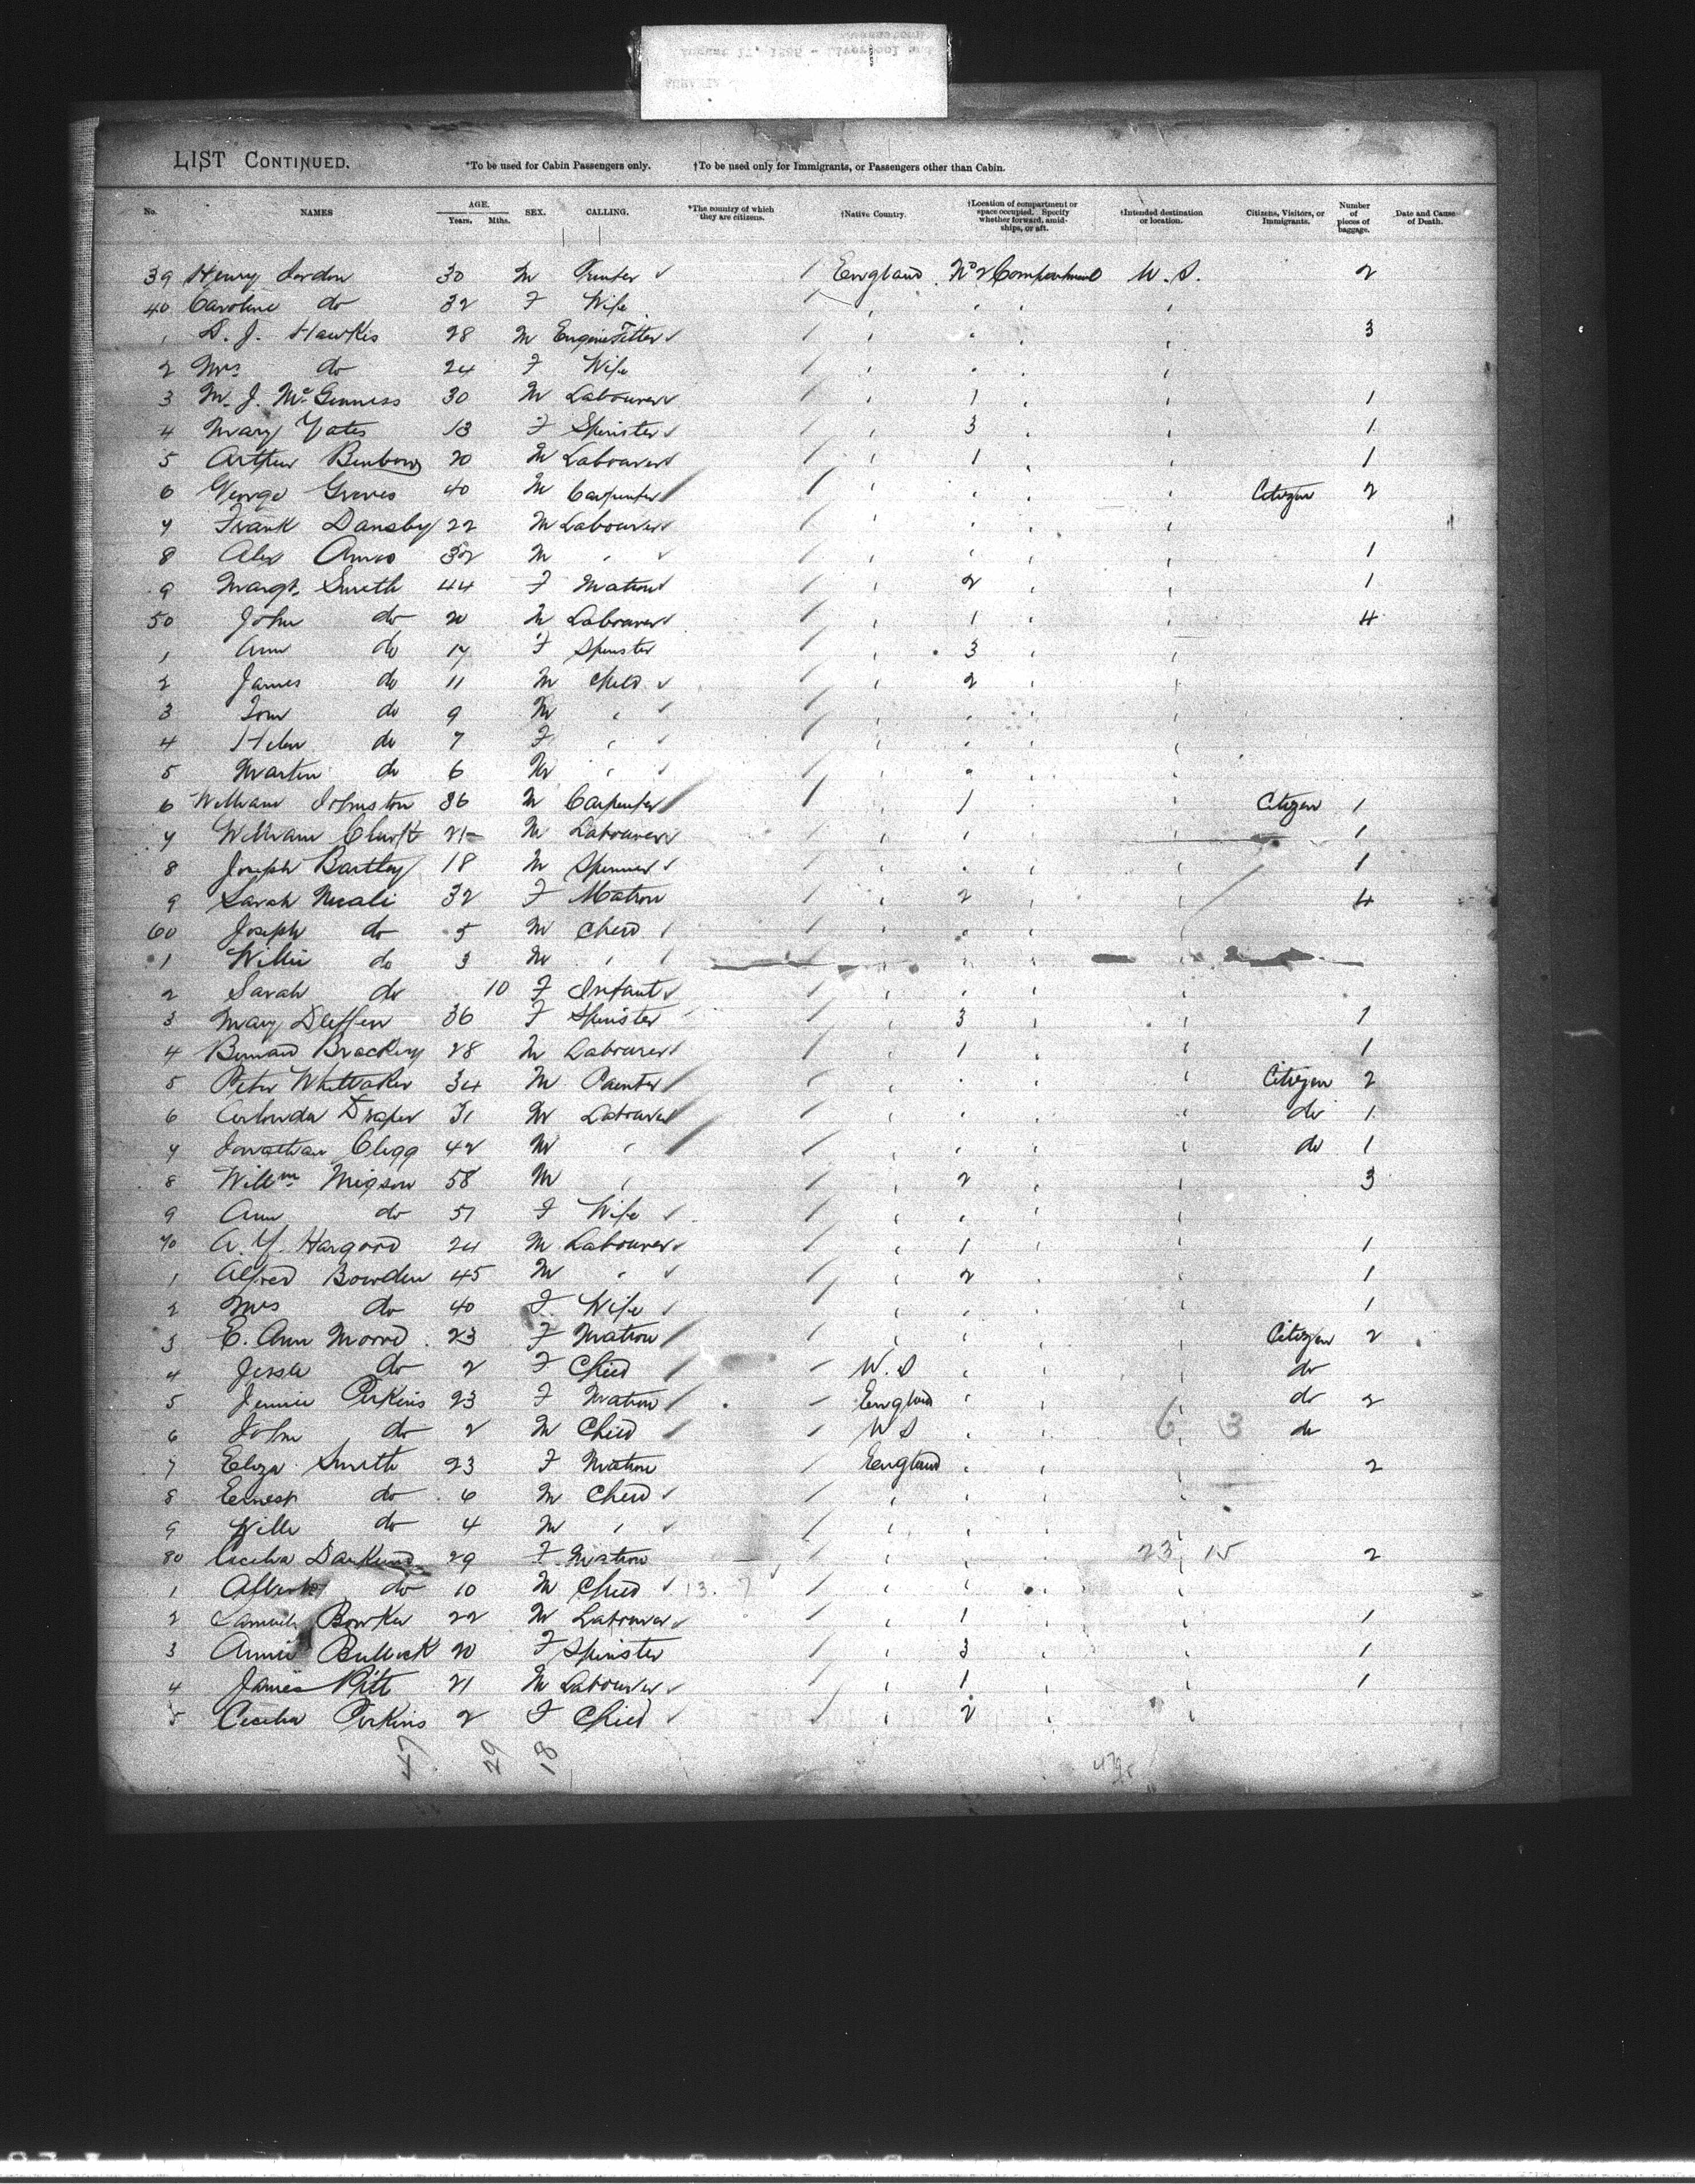 LIST CONTINUED. *To be used for Cabin Passengers only. †To be used only for Immigrants, or Passengers other than Cabin.
No. NAMES AGE. Years. Mths. SEX. CALLING. *The country of which they are citizens. †Native Country. †Location of compartment or space occupied. Specify whether forward, amidships, or aft. †Intended destination or location. Citizens, Visitors, or Immigrants. Number of pieces of baggage. Date and Cause of Death.
39 Henry Jordon 30 M England No 2 Compartment U.S. 2
40 Caroline do 32 F Wife
1 D. J. Hawkis 28 M Engine Fitter 3
2 Mrs do 24 F Wife
3 M. J. McGinness 30 M Labourer 1 1
4 Mary Yates 13 F Spinster 3 1
5 Arthur Binbow 20 M Labourer 1 1
6 George Groves 40 M Carpenter Citizen 2
7 Frank Dansby 22 M Labourer
8 Alex Amos 32 M 1
9 Margt. Smith 44 F Matron 2 1
50 John do 20 M Labourer 1 4
1 Ann do 17 F Spinster 3
2 James do 11 M Child 2
3 Tom do 9 M
4 Helen do 7 F
5 Martin do 6 M
6 William Johnston 36 M Carpenter 1 Citizen 1
7 William Clurk 21 M Labourer 1
8 Joseph Bartley 18 M Spinner 1
9 Sarah 32 F Matron 2 4
60 Joseph do 5 M Child
1 Willie do 3 M
2 Sarah do 10 F Infant
3 Mary 36 F Spinster 3 1
4 Bernard 28 M Labourer 1 1
5 Peter Whittaker 34 M Painter Citizen 2
6 Draper 31 M Labourer do 1
7 Jonathan Clegg 42 M do 1
8 Willm Migson 58 M 2 3
9 Ann do 51 F Wife
70 A. Y. Hargood 24 M Labourer 1 1
1 Alfred Bowden 45 M 2 1
2 Mrs do 40 F Wife 1
3 E. Ann 23 F Matron Citizen 2
4 Jessa do 2 F Child U.S do
5 Jennie Perkins 23 F Matron England do 2
6 John do 2 M Child U S 6 3 do
7 Eliza Smith 23 F Matron England 2
8 Ernest do 6 M Child
9 Willie do 4 M
80 Cecelia 29 F Matron 23 15 2
1 Albert do 10 M Child 13 7
2 Samuel Bowker 22 M Labourer 1 1
3 Annie Bullock 20 F Spinster 3 1
4 James Pitt 21 M Labourer 1 1
5 Cecelia Perkins 2 F Child 2
47 29 18